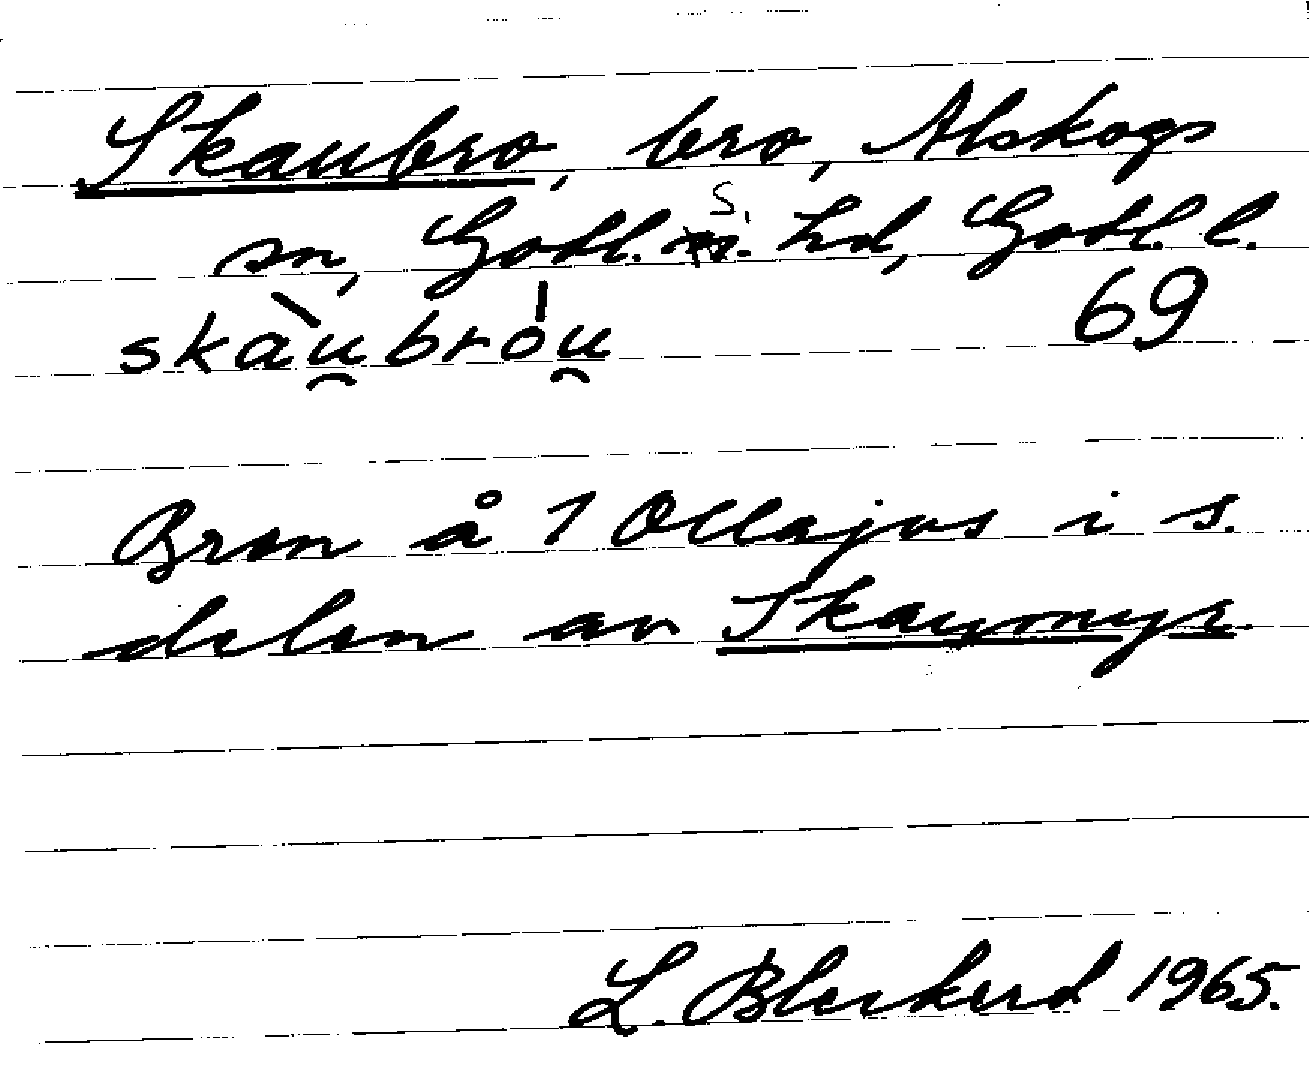 Skaubro, bro, Alskogs
sn, Gotl. s. hd, Gotl. l.
skàu̯bróu̯ 69
Bron å 1 Ollajvs i s.
delen av Skaumyr.
L. Bleckerd 1965.